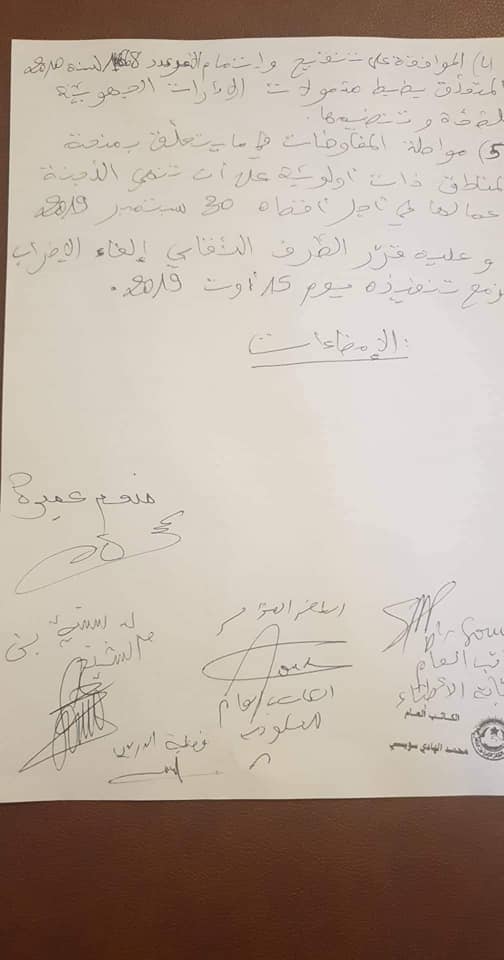 الموافقة على تنقيح وإتمام الأمر عدد 168 لسنة 2010
المتعلّق بضبط مشمولات الإدارات الجهوية
للصحّة وتنظيمها.
5) مواصلة المفاوضات في ما يتعلّق بمنحة
المناطق ذات أولوية على أن تنهي اللجنة
أعمالها في أجل أقصاه 30 سبتمبر 2019
وعليه قرّر الطرف النقابي إلغاء الإضراب
المزمع تنفيذه يوم 15 أوت 2019.
الإمضاءات:
منعم عميرة
الكاتب العام
الكاتب العام
محمد الهادي سويسي